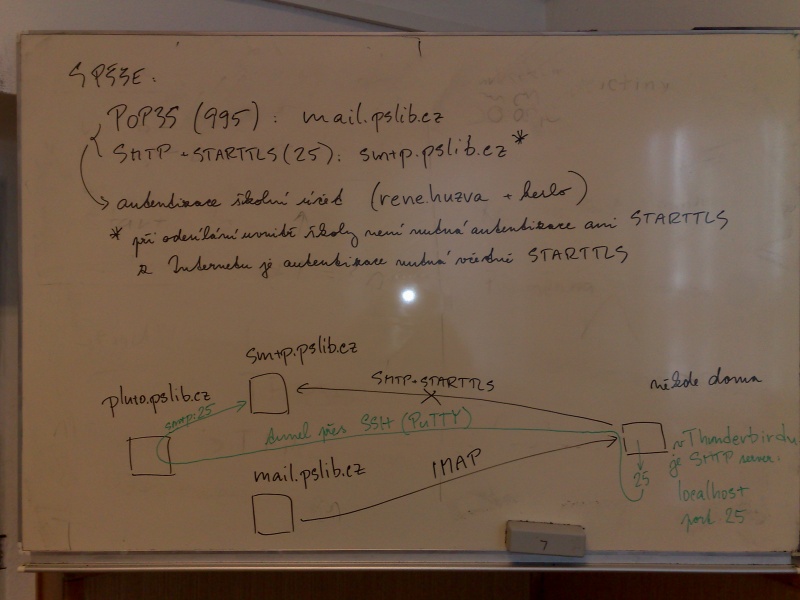 SPŠSE:
POP3S (995): mail.pslib.cz
SMTP + STARTTLS (25): smtp.pslib.cz *
autentizace školní účet (rene.huzva + heslo)
* při odesílání uvnitř školy není nutná autentizace ani STARTTLS
z Internetu je autentizace nutná včetně STARTTLS
smtp.pslib.cz
SMTP+STARTTLS
někde doma
pluto.pslib.cz
smtp:25
tunel přes SSH (PuTTY)
v Thunderbirdu
je SMTP server:
mail.pslib.cz
IMAP
25
localhost
port 25